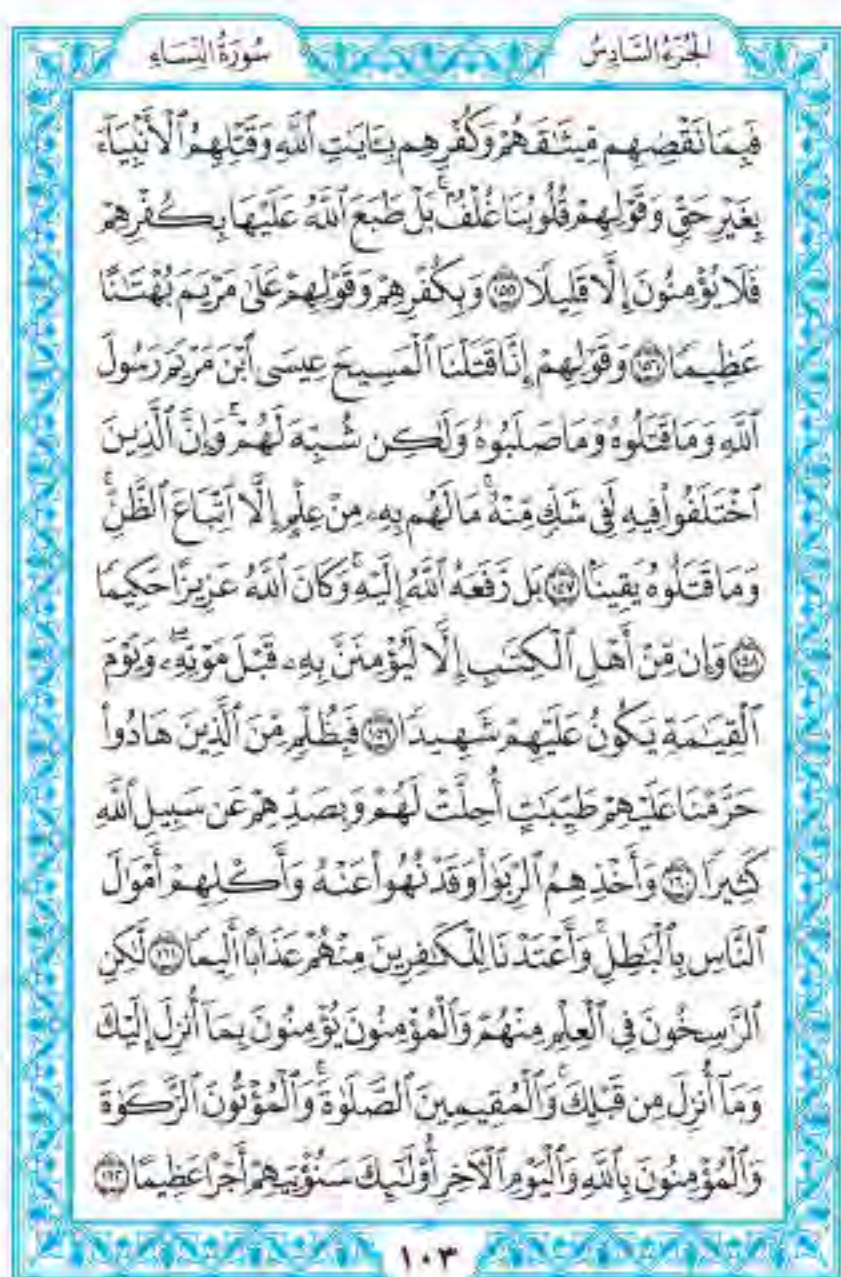 الجزء السادس
سورة النساء
فَبِمَا نَقْضِهِم مِّيثَٰقَهُمْ وَكُفْرِهِم بِـَٔايَٰتِ ٱللَّهِ وَقَتْلِهِمُ ٱلْأَنۢبِيَآءَ
بِغَيْرِ حَقٍّ وَقَوْلِهِمْ قُلُوبُنَا غُلْفٌۢ ۚ بَلْ طَبَعَ ٱللَّهُ عَلَيْهَا بِكُفْرِهِمْ
فَلَا يُؤْمِنُونَ إِلَّا قَلِيلًا ١٥٥ وَبِكُفْرِهِمْ وَقَوْلِهِمْ عَلَىٰ مَرْيَمَ بُهْتَٰنًا
عَظِيمًا ١٥٦ وَقَوْلِهِمْ إِنَّا قَتَلْنَا ٱلْمَسِيحَ عِيسَى ٱبْنَ مَرْيَمَ رَسُولَ
ٱللَّهِ وَمَا قَتَلُوهُ وَمَا صَلَبُوهُ وَلَٰكِن شُبِّهَ لَهُمْ ۚ وَإِنَّ ٱلَّذِينَ
ٱخْتَلَفُوا۟ فِيهِ لَفِى شَكٍّ مِّنْهُ ۚ مَا لَهُم بِهِۦ مِنْ عِلْمٍ إِلَّا ٱتِّبَاعَ ٱلظَّنِّ ۚ
وَمَا قَتَلُوهُ يَقِينًۢا ١٥٧ بَل رَّفَعَهُ ٱللَّهُ إِلَيْهِ ۚ وَكَانَ ٱللَّهُ عَزِيزًا حَكِيمًا
١٥٨ وَإِن مِّنْ أَهْلِ ٱلْكِتَٰبِ إِلَّا لَيُؤْمِنَنَّ بِهِۦ قَبْلَ مَوْتِهِۦ ۖ وَيَوْمَ
ٱلْقِيَٰمَةِ يَكُونُ عَلَيْهِمْ شَهِيدًا ١٥٩ فَبِظُلْمٍ مِّنَ ٱلَّذِينَ هَادُوا۟
حَرَّمْنَا عَلَيْهِمْ طَيِّبَٰتٍ أُحِلَّتْ لَهُمْ وَبِصَدِّهِمْ عَن سَبِيلِ ٱللَّهِ
كَثِيرًا ١٦٠ وَأَخْذِهِمُ ٱلرِّبَوٰا۟ وَقَدْ نُهُوا۟ عَنْهُ وَأَكْلِهِمْ أَمْوَٰلَ
ٱلنَّاسِ بِٱلْبَٰطِلِ ۚ وَأَعْتَدْنَا لِلْكَٰفِرِينَ مِنْهُمْ عَذَابًا أَلِيمًا ١٦١ لَّٰكِنِ
ٱلرَّٰسِخُونَ فِى ٱلْعِلْمِ مِنْهُمْ وَٱلْمُؤْمِنُونَ يُؤْمِنُونَ بِمَآ أُنزِلَ إِلَيْكَ
وَمَآ أُنزِلَ مِن قَبْلِكَ ۚ وَٱلْمُقِيمِينَ ٱلصَّلَوٰةَ ۚ وَٱلْمُؤْتُونَ ٱلزَّكَوٰةَ
وَٱلْمُؤْمِنُونَ بِٱللَّهِ وَٱلْيَوْمِ ٱلْـَٔاخِرِ أُو۟لَٰٓئِكَ سَنُؤْتِيهِمْ أَجْرًا عَظِيمًا ١٦٢
١٠٣